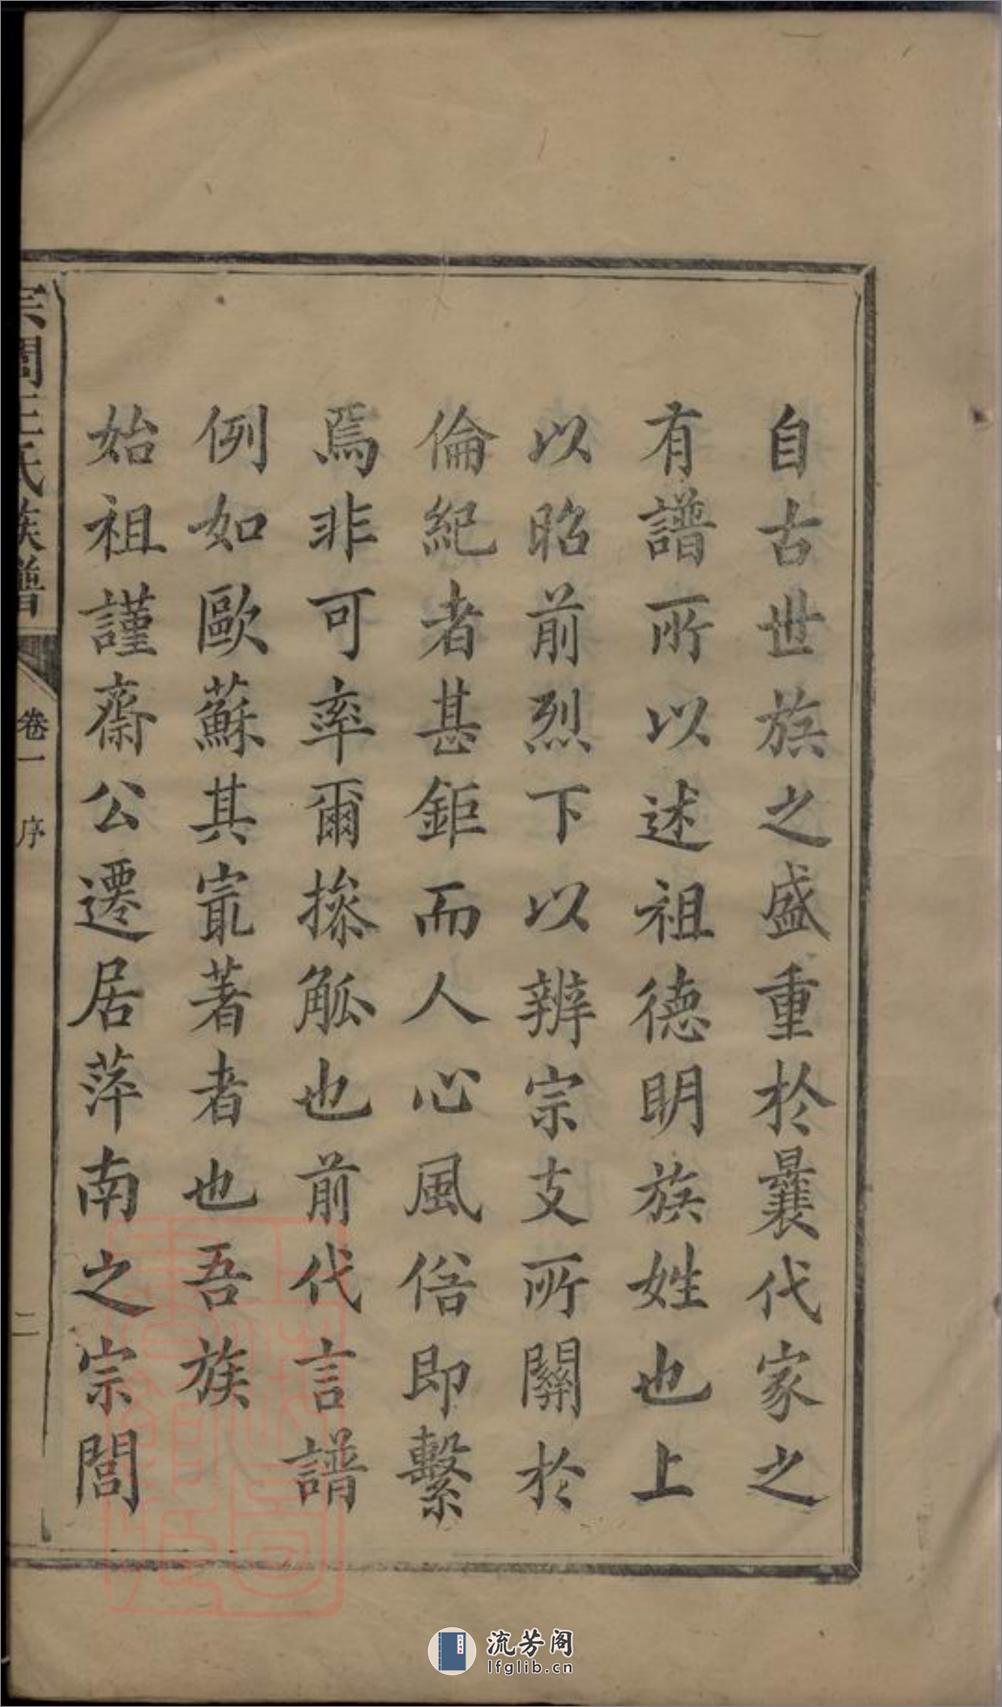 自古世族之盛重於曩代家之
有譜所以述祖德明族姓也上
以昭前烈下以辨宗支所關於
倫紀者甚鉅而人心風俗即繫
焉非可率爾操觚也前代言譜
例如歐蘇其㝡著者也吾族
始祖謹齋公遷居萍南之宗閭
王氏族譜
卷一 序
二
流芳阁
lfglib.cn